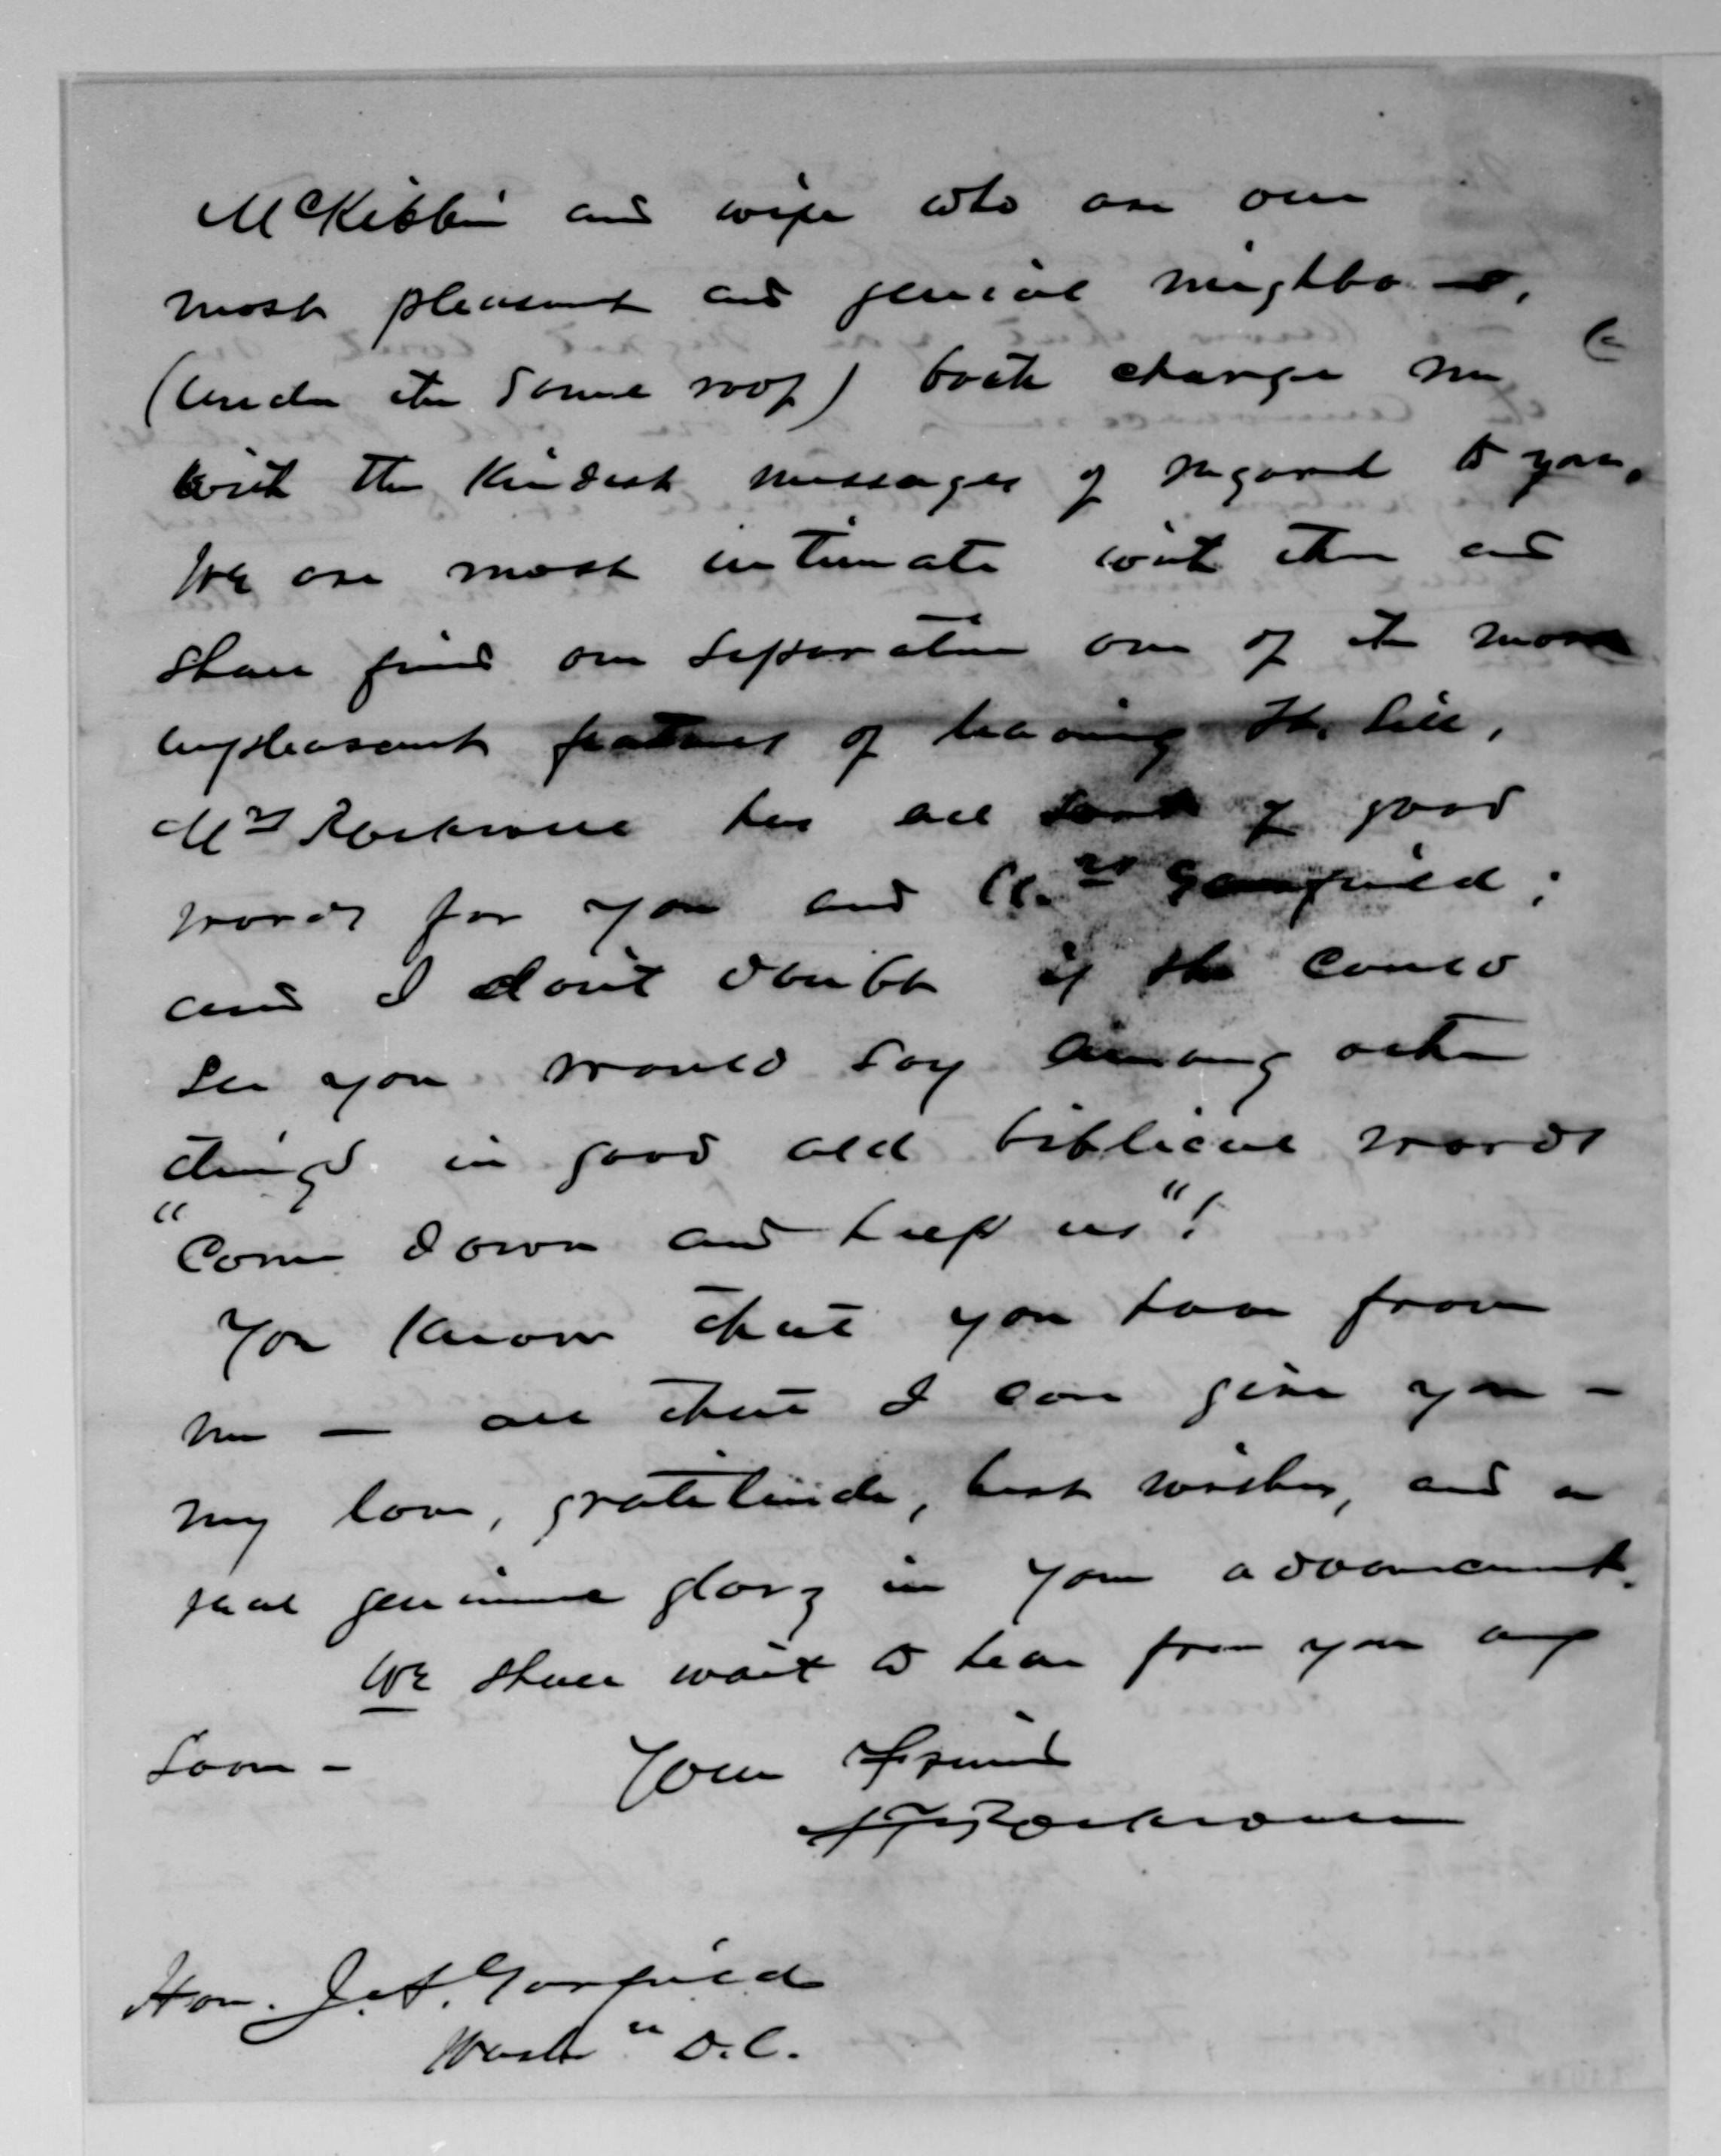 McKibbin and wife who are our
most pleasant and genial neighbors,
(under the same roof) both charge me
with the kindest messages of regard to you.
We are most intimate with them and
shall find our separation one of the most
unpleasant features of leaving the hill.
Mrs Rockwell has all sorts of good
words for you and Mrs Garfield;
and I don't doubt if she could
see you would say among other
things in good old biblical words
"Come down and help us"!
You know that you have from
me — all that I can give you —
my love, gratitude, best wishes, and a
real genuine glory in your advancement.
We shall wait to hear from you
soon —
Your friend
A F Rockwell
Hon. J. A. Garfield
Washn D.C.